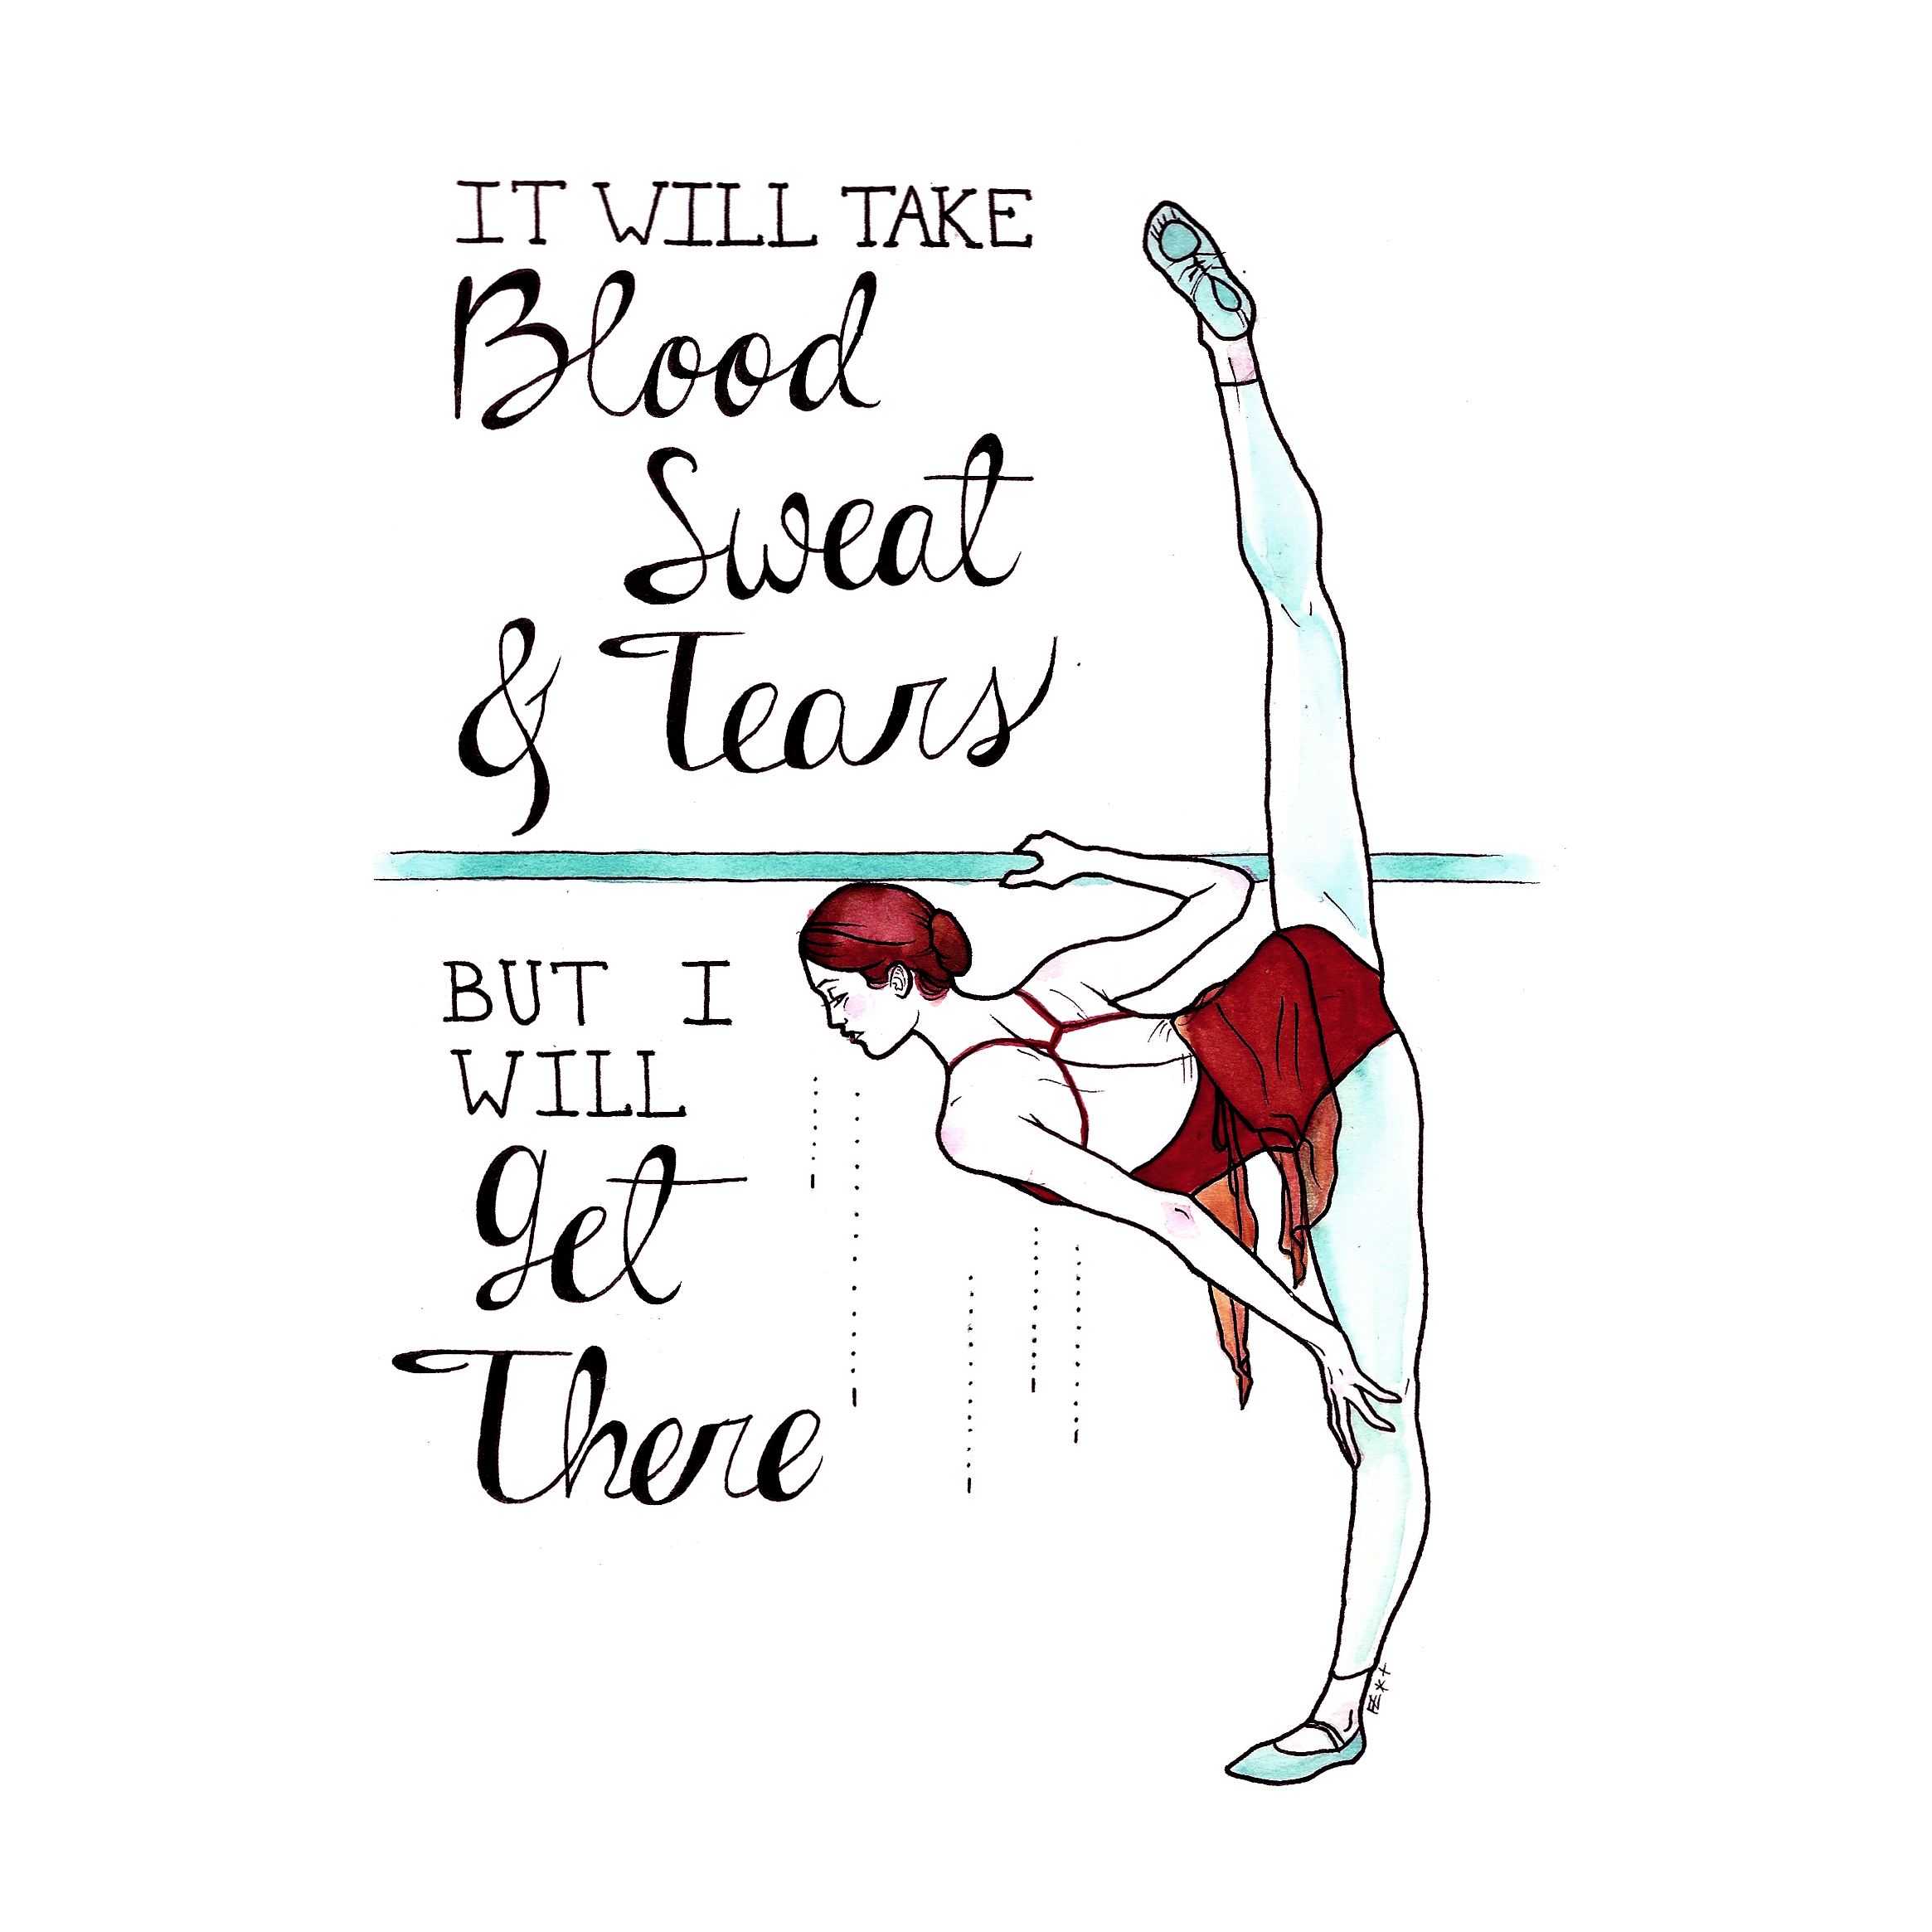 IT WILL TAKE
Blood
Sweat
& Tears
BUT I
WILL
get
There